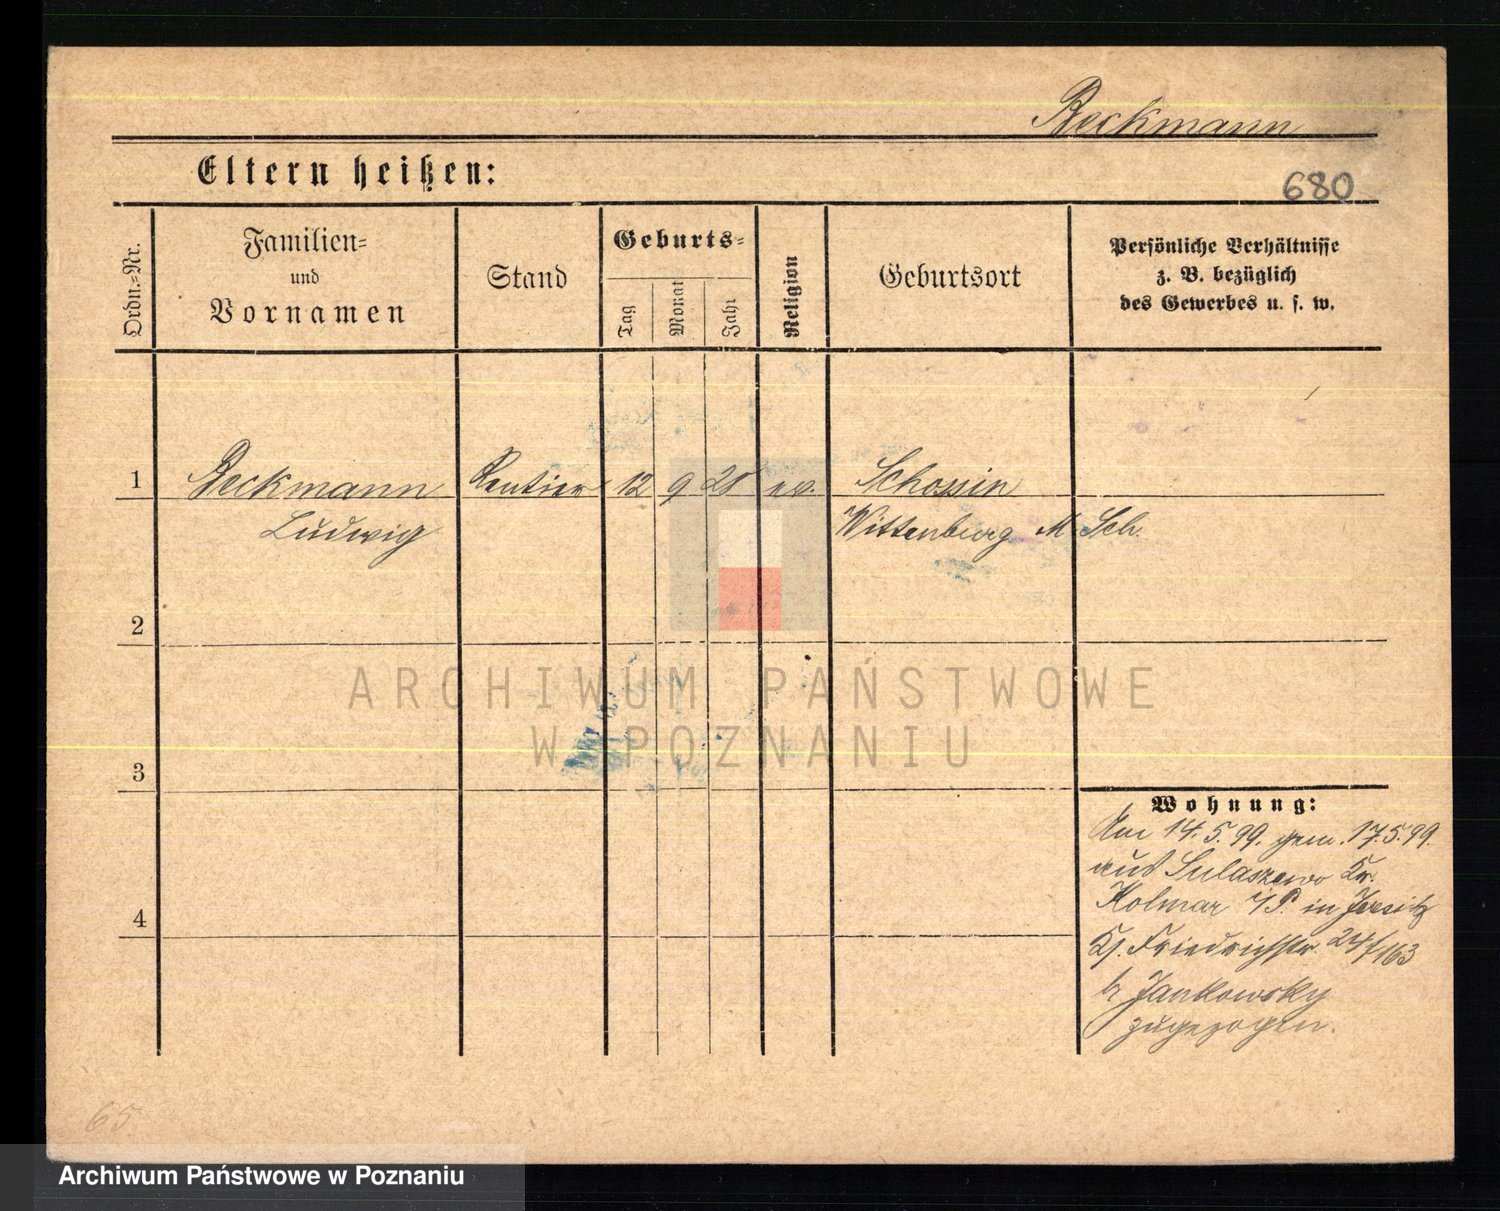 Beckmann
Eltern heißen:
680
Ordn.=Nr.
Familien=
und
Vornamen
Stand
Geburts=
Tag
Monat
Jahr
Religion
Geburtsort
Persönliche Verhältnisse
z. B. bezüglich
des Gewerbes u. s. w.
1
Beckmann Rentier 12 9 28 ev. Schossin
Ludwig Wittenburg M. Sch.
2
ARCHIWUM PAŃSTWOWE
W POZNANIU
3
Wohnung:
Am 14.5.99. gem. 17.5.99.
aus Sulaszewo Kr.
Kolmar i/P. in Jersitz
Ks. Friedrichstr. 24/163
b Jankowsky
zugezogen.
4
65
Archiwum Państwowe w Poznaniu